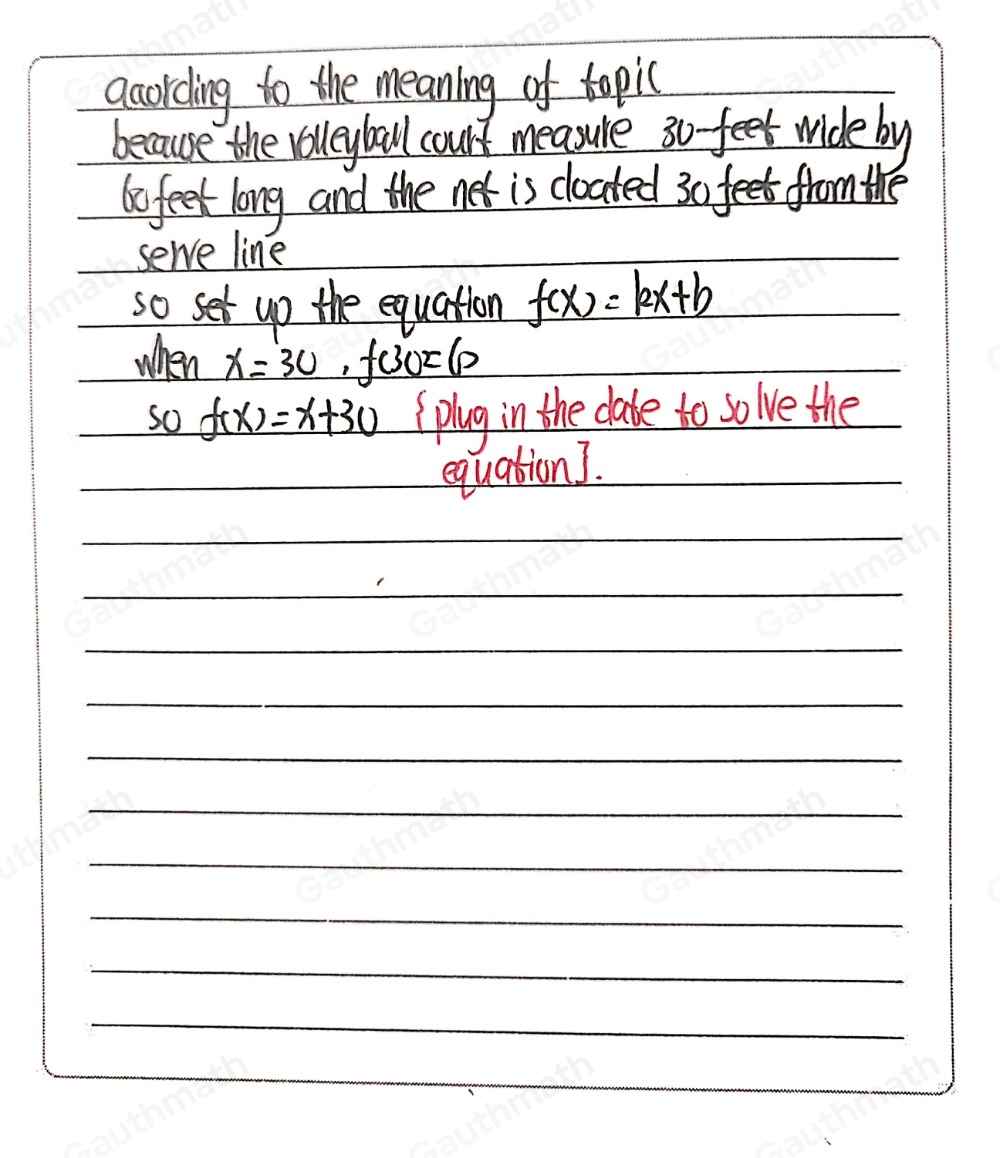 acording to the meaning of topic
because the volleyball court measure 30-feet wide by
60 feet long and the net is cloated 30 feet from the
serve line
so set up the equation f(x) = kx+b
when x = 30 , f(30=60
so f(x) = x+30 {plug in the date to solve the
equation].
Gauthmath